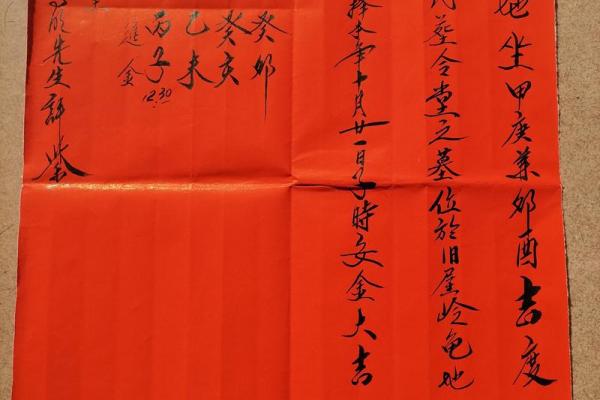 地坐甲庚兼卯酉吉度
葬令堂之墓位於旧屋岭龟地
择本年十月廿一日子時安金大吉
癸卯
癸亥
乙未
丙子
12.30
金
先生